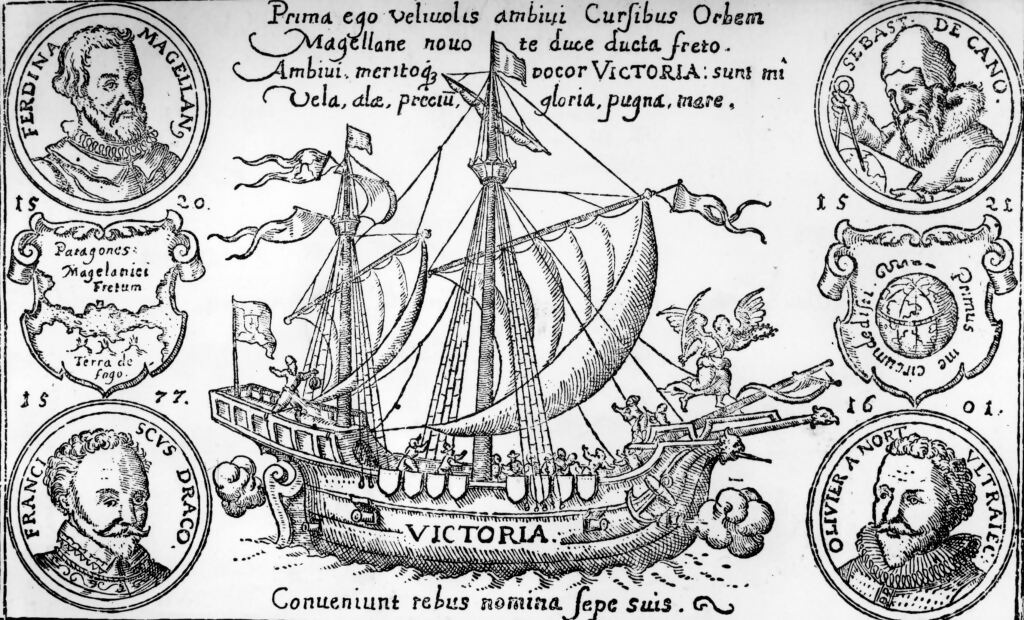 Prima ego velivolis ambivi Cursibus Orbem
Magellane novo te duce ducta freto.
Ambivi, meritoqꝫ vocor VICTORIA: sunt mî
Vela, alæ, preciũ, gloria, pugna, mare.
FERDINA MAGELLAN
1520.
SEBAST. DE CANO.
1521
Patagones:
Magelanici
Fretum
Terra de
fogo.
Primus me circumdedisti.
1577.
FRANCISCVS DRACO.
1601.
OLIVIER A NORT VLTRAIEC.
VICTORIA.
Conveniunt rebus nomina sepe suis.